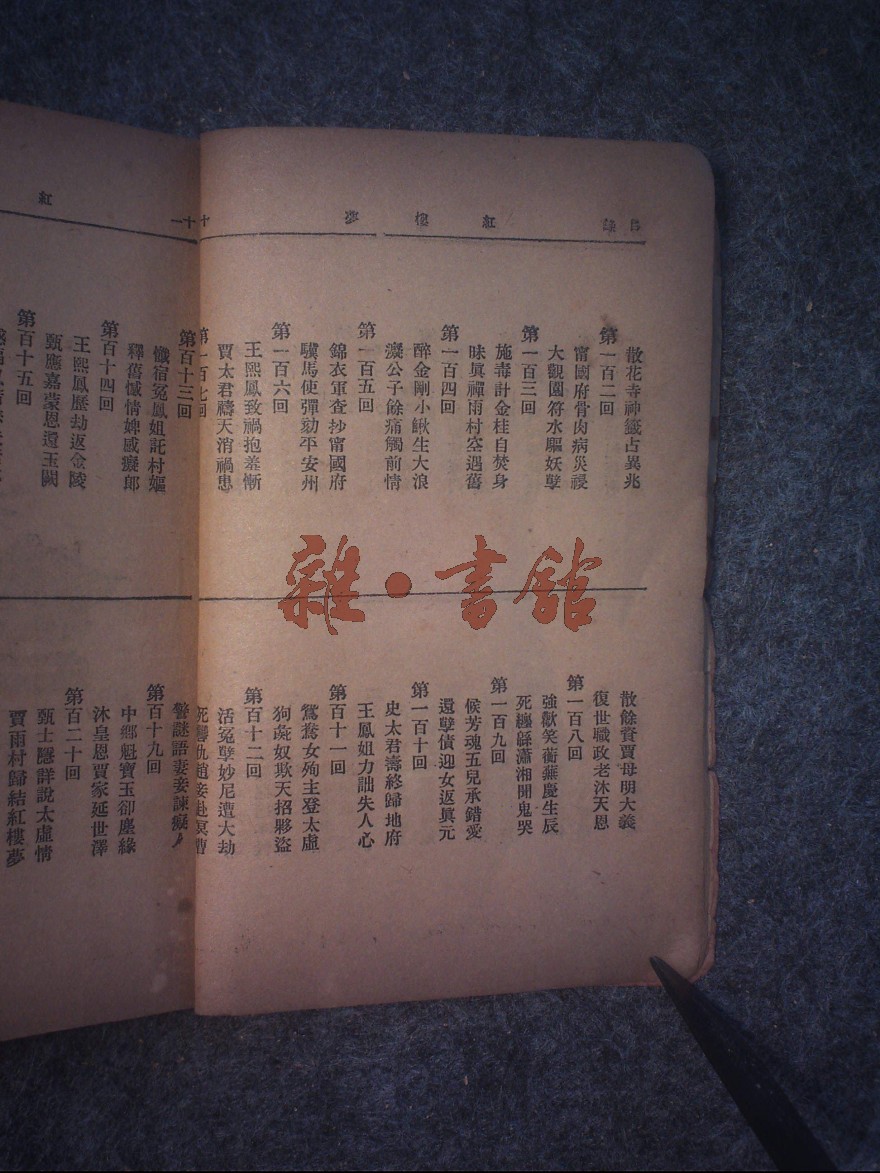 目錄 紅樓夢 十一
散花寺神籤占異兆
第一百二回
甯國府骨肉病災祲
大觀園符水驅妖孽
第一百三回
施毒計金桂自焚身
昧眞禪雨村空遇舊
第一百四回
醉金剛小鰍生大浪
癡公子餘痛觸前情
第一百五回
錦衣軍查抄甯國府
驄馬使彈劾平安州
第一百六回
王熙鳳致禍抱羞慚
賈太君禱天消禍患
第一百七回
散餘資賈母明大義
復世職政老沐天恩
第一百八回
強歡笑蘅蕪慶生辰
死纏綿瀟湘聞鬼哭
第一百九回
候芳魂五兒承錯愛
還孽債迎女返眞元
第一百十回
史太君壽終歸地府
王鳳姐力詘失人心
第百十一回
鴛鴦女殉主登太虛
狗彘奴欺天招夥盜
第百十二回
活冤孽妙尼遭大劫
死讐仇趙妾赴冥曹
紅 十
第百十三回
懺宿冤鳳姐託村嫗
釋舊憾情婢感癡郎
第百十四回
王熙鳳歷劫返金陵
甄應嘉蒙恩還玉闕
第百十五回
警謎語妻妾諫癡人
第百十九回
中鄉魁寶玉卻塵緣
沐皇恩賈家延世澤
第百二十回
甄士隱詳說太虛情
賈雨村歸結紅樓夢
雜·書舘